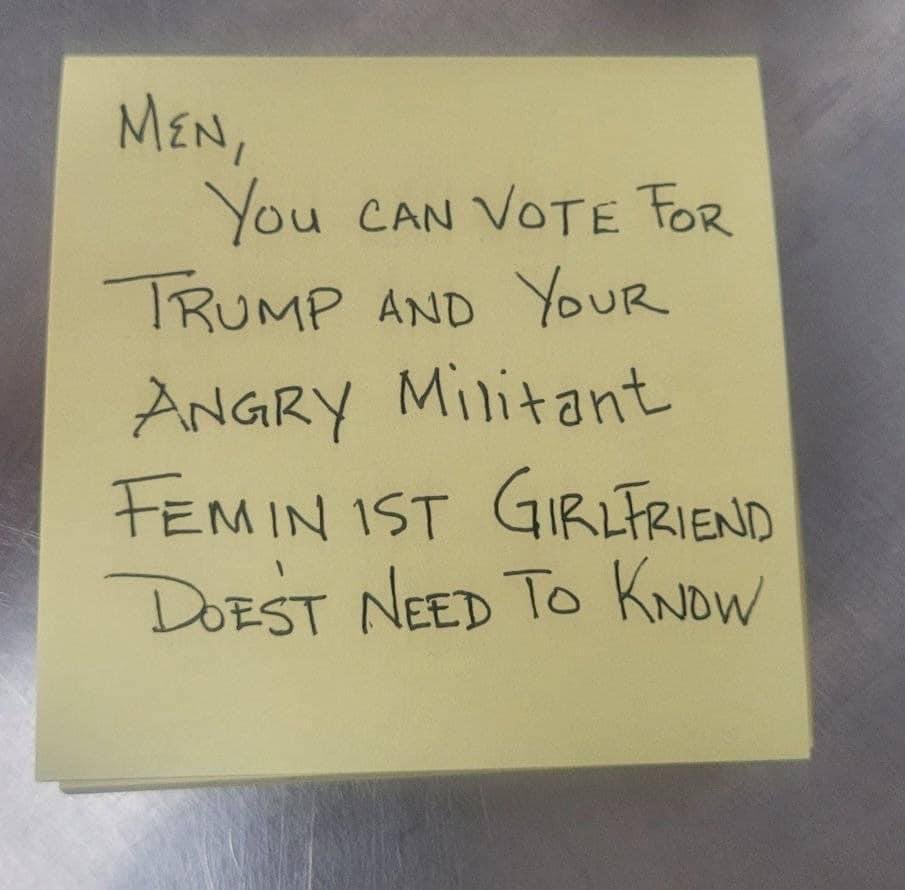 MEN,
YOU CAN VOTE FOR
TRUMP AND YOUR
ANGRY Militant
FEMINIST GIRLFRIEND
DOES'T NEED TO KNOW